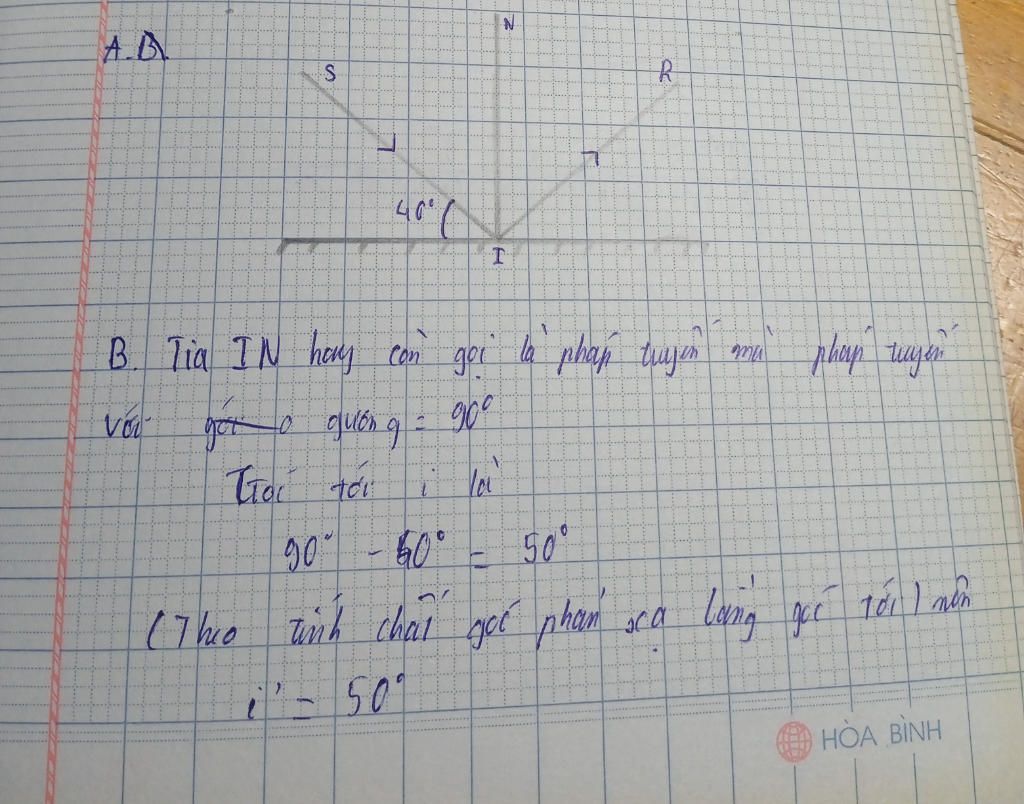 A.B.
N
S
R
40°
I
B. Tia IN hay còn gọi là pháp tuyến mà pháp tuyến
với góc o gương = 90°
Góc tới i là
90° - 40° = 50°
(Theo tính chất góc phản xạ bằng góc tới) nên
i' = 50°
HÒA BÌNH